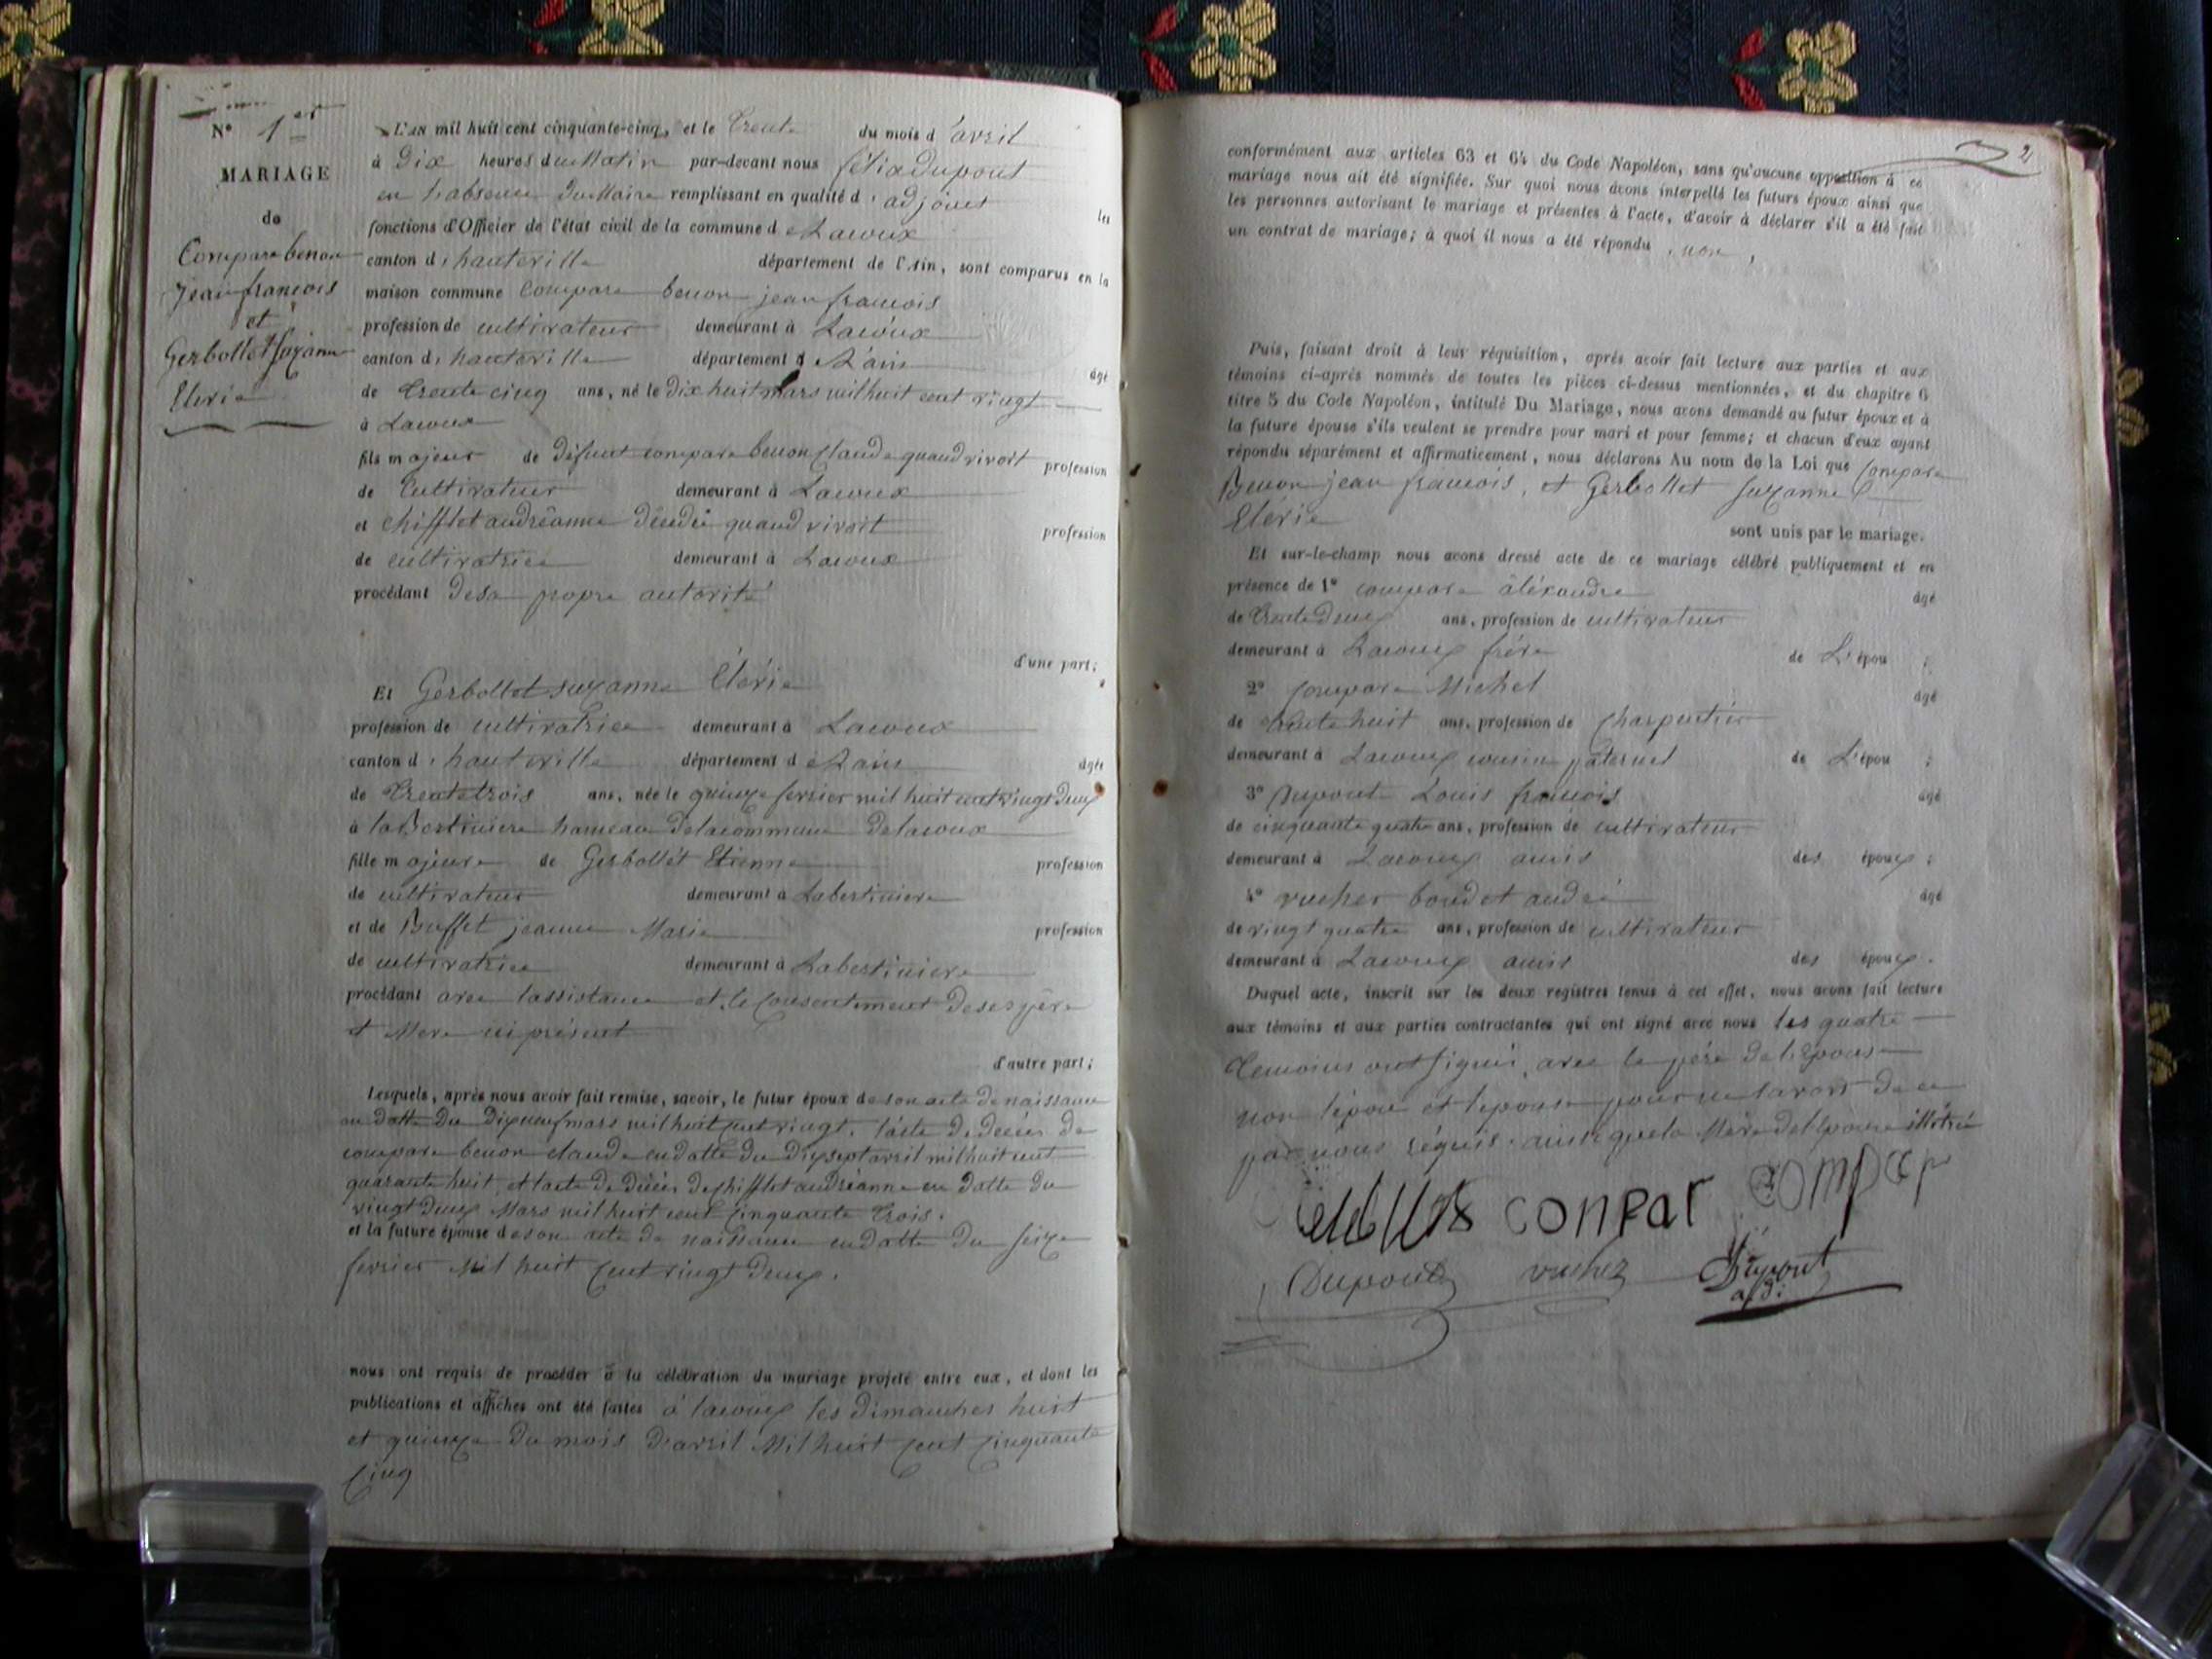 N° 1er
MARIAGE
de
Compare benon
Jean francois
et
Gerbollet suzanne
Elerie
L'AN mil huit cent cinquante-cinq, et le trente du mois d'avril
à Dix heures du Matin par-devant nous félix dupont
en l'absence du Maire remplissant en qualité d'adjoint les
fonctions d'Officier de l'état civil de la commune de Lacoux
canton d'hauteville département de l'Ain, sont comparus en la
maison commune Compare benon jean francois
profession de cultivateur demeurant à Lacoux
canton d'hauteville département de L'ain âgé
de trente cinq ans, né le dix huit mars mil huit cent vingt
à Lacoux
fils majeur de défunt compare benon claude quand vivoit profession
de Cultivateur demeurant à Lacoux
et chifflet andréanne quand vivoit profession
de cultivatrice demeurant à Lacoux
procédant de sa propre autorité
d'une part;
Et Gerbollet suzanne Elérie
profession de cultivatrice demeurant à Lacoux
canton d'hauteville département de L'ain âgée
de trente trois ans, née le quinze fevrier mil huit cent vingt deux
à la Bertiniere hameau de la commune de lacoux
fille majeure de Gerbollet Etienne profession
de cultivateur demeurant à Labertiniere
et de Buffet jeanne Marie profession
de cultivatrice demeurant à Labertiniere
procédant avec lassistance et le consentement de ses père
et Mere ici présent
d'autre part;
Lesquels, après nous avoir fait remise, savoir, le futur époux de son acte de naissance
en datte du dix neuf mars mil huit cent vingt. l'acte de décés de
compare benon claude en datte du dix sept avril mil huit cent
quarante huit, et lacte de décés de chifflet andréanne en datte du
vingt deux Mars mil huit cent cinquante trois.
et la future épouse de son acte de naissance en datte du seize
fevrier Mil huit cent vingt deux.
nous ont requis de procéder à la célébration du mariage projeté entre eux, et dont les
publications et affiches ont été faites à lacoux les dimanches huit
et quinze du mois d'avril Mil huit cent cinquante
cinq
2
conformément aux articles 63 et 64 du Code Napoléon, sans qu'aucune opposition à ce
mariage nous ait été signifiée. Sur quoi nous avons interpellé les futurs époux ainsi que
les personnes autorisant le mariage et présentes à l'acte, d'avoir à déclarer s'il a été fait
un contrat de mariage; à quoi il nous a été répondu, non,
Puis, faisant droit à leur réquisition, après avoir fait lecture aux parties et aux
témoins ci-après nommés de toutes les pièces ci-dessus mentionnées, et du chapitre 6
titre 5 du Code Napoléon, intitulé Du Mariage, nous avons demandé au futur époux et à
la future épouse s'ils veulent se prendre pour mari et pour femme; et chacun d'eux ayant
répondu séparément et affirmativement, nous déclarons Au nom de la Loi que Compare
Benon jean francois, et Gerbollet suzanne
Elérie sont unis par le mariage.
Et sur-le-champ nous avons dressé acte de ce mariage célébré publiquement et en
présence de 1° compare aléxandre âgé
de trente deux ans, profession de cultivateur
demeurant à Lacoux frère de L'épou ;
2° compare Michel âgé
de trente huit ans, profession de charpentier
demeurant à Lacoux cousin paternel de L'épou ;
3° Dupont Louis francois âgé
de cinquante quatre ans, profession de cultivateur
demeurant à Lacoux amis des époux ;
4° vucher boudet andré âgé
de vingt quatre ans, profession de cultivateur
demeurant à Lacoux amis des époux.
Duquel acte, inscrit sur les deux registres tenus à cet effet, nous avons fait lecture
aux témoins et aux parties contractantes qui ont signé avec nous les quatre
temoins ont signés, avec le père de l'epouse
non lépou et lepouse pour ne savoir de ce
par nous réquis. ainsi que la Mère de lepouse illitrée
conpar compar
Dupont vucher Dupont
adj: